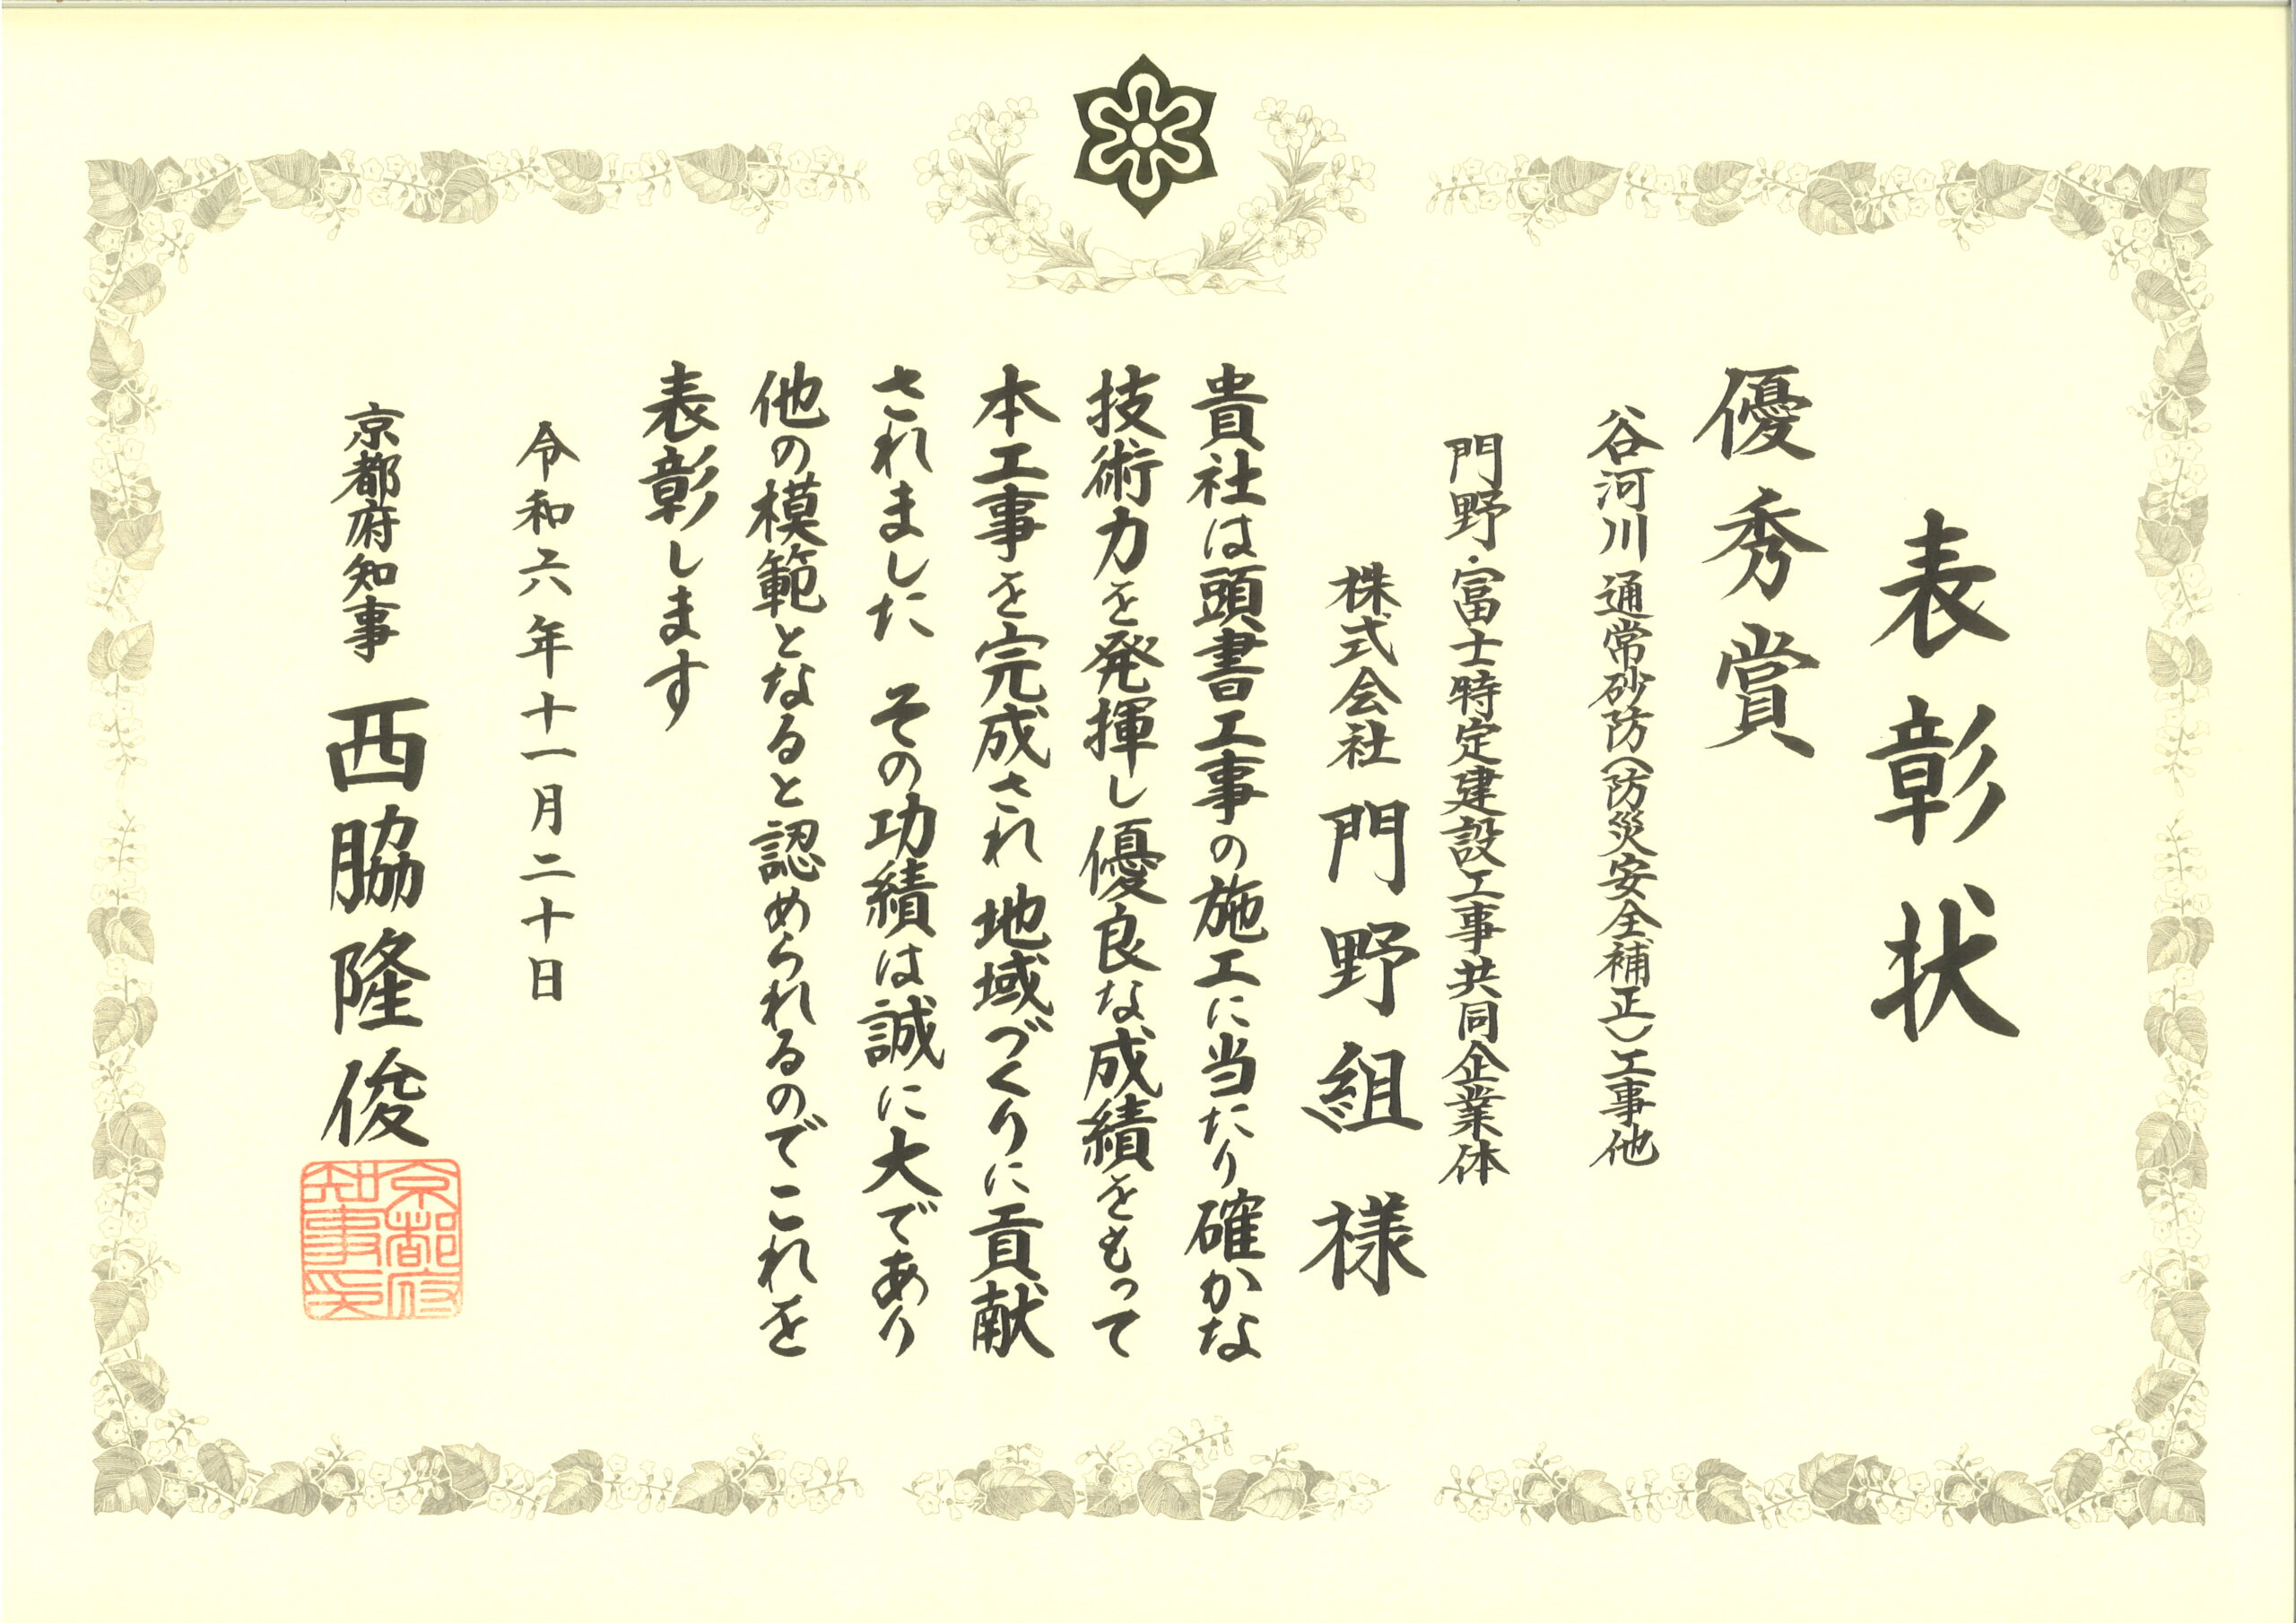 表彰状
優秀賞
谷河川通常砂防(防災安全補正)工事他
門野・富士特定建設工事共同企業体
株式会社門野組様
貴社は頭書工事の施工に当たり確かな
技術力を発揮し優良な成績をもって
本工事を完成され地域づくりに貢献
されました その功績は誠に大であり
他の模範となると認められるのでこれを
表彰します
令和六年十一月二十日
京都府知事 西脇隆俊
京都府
知事印